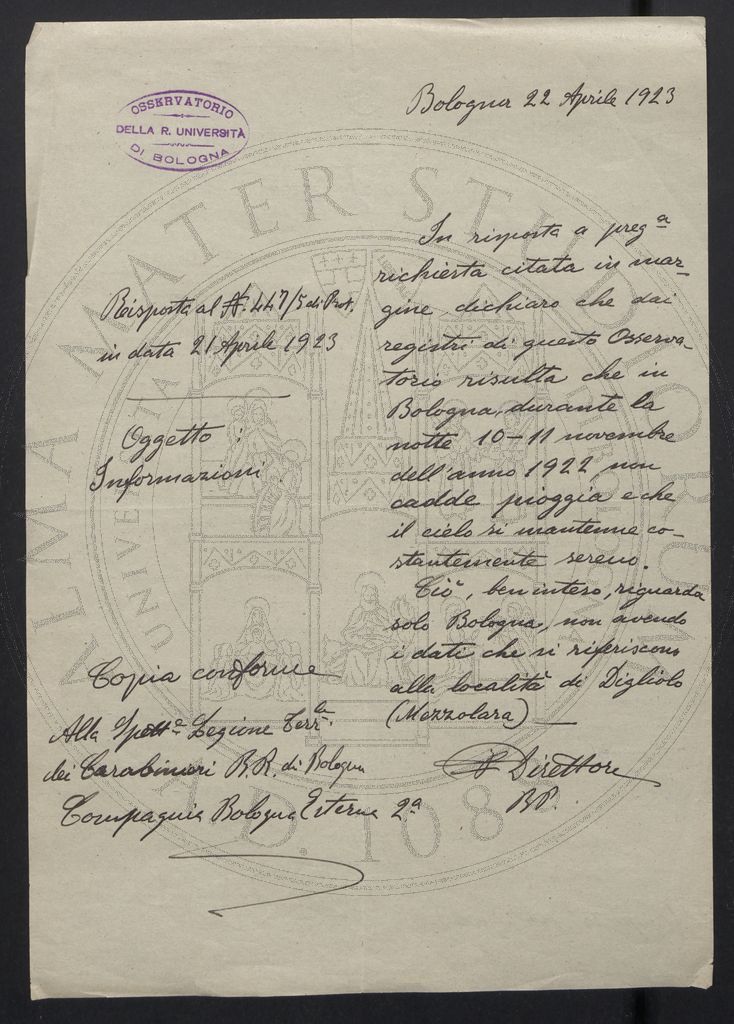 OSSERVATORIO
DELLA R. UNIVERSITÀ
DI BOLOGNA
Bologna 22 Aprile 1923
Risposta al N. 447/5 di Prot.
in data 21 Aprile 1923
Oggetto:
Informazioni.
In risposta a pregª
richiesta citata in mar-
gine, dichiaro che dai
registri di questo Osserva-
torio risulta che in
Bologna, durante la
notte 10-11 novembre
dell'anno 1922, non
cadde pioggia e che
il cielo si mantenne co-
stantemente sereno.
Ciò, ben inteso, riguarda
solo Bologna, non avendo
i dati che si riferiscono
alla località di Digliolo
(Mezzolara)
Il Direttore
Copia conforme
Alla Spettª Legione Terrˡᵃ
dei Carabinieri R.R. di Bologna
Compagnia Bologna Esterna 2ª
ALMA MATER STUDIORUM
A.D. 1088